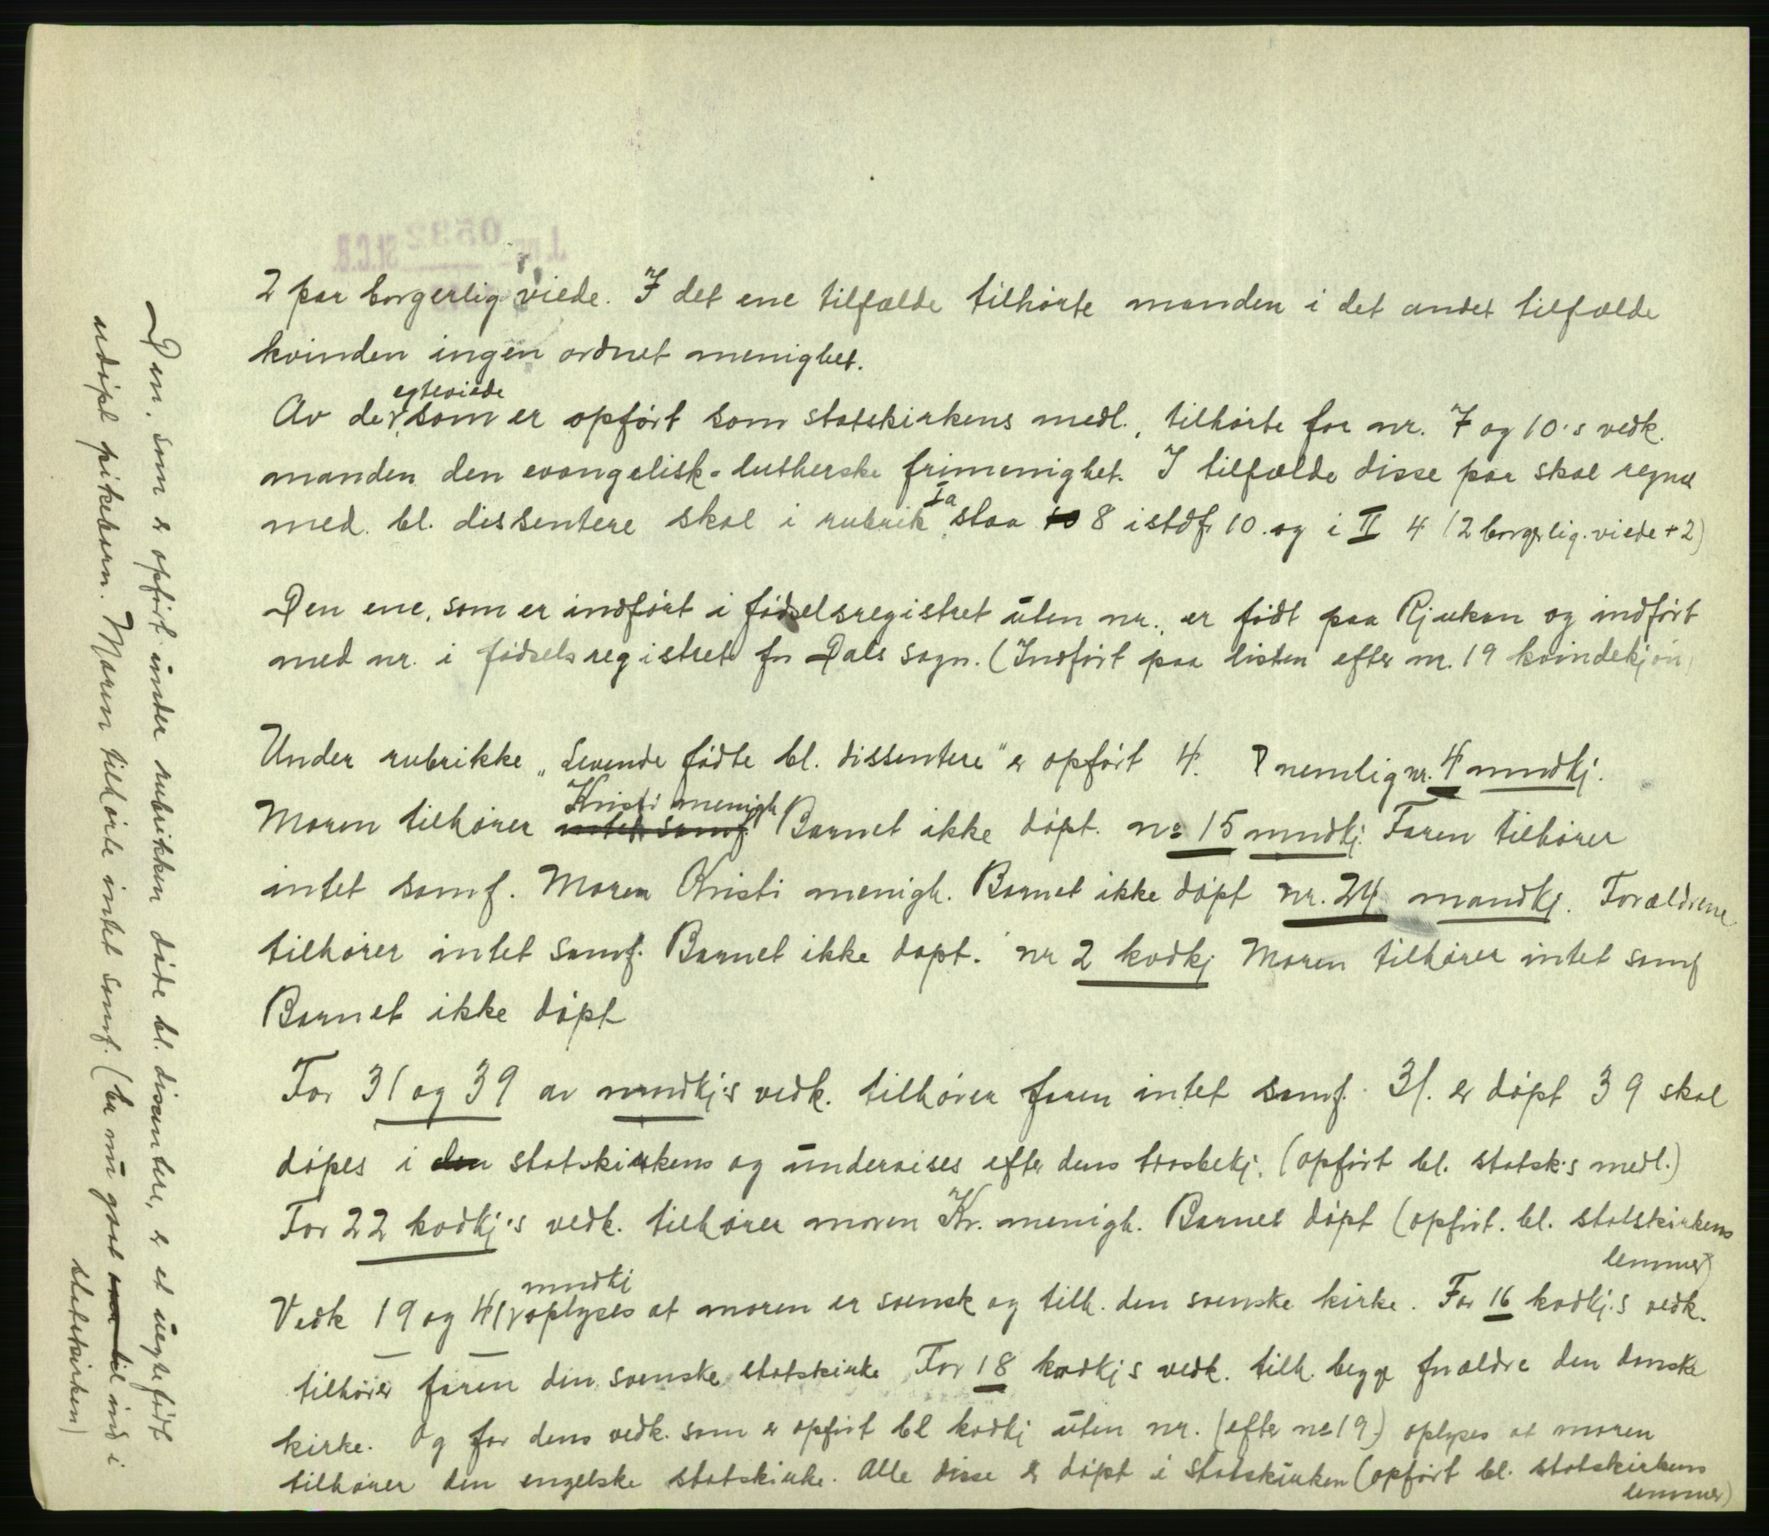 2 par borgerlig viede. I det ene tilfælde tilhørte manden i det andet tilfælde
kvinden ingen ordnet menighet.
egteviede
Av de som er opført som statskirkens medl., tilhørte for nr. 7 og 10's vedk.
manden den evangelisk-lutherske frimenighet. I tilfælde disse par skal regnes
med bl. dissentere skal i rubrik Ia staa 8 istdf. 10 og i II 4 (2 borgerlig. viede + 2)
Den ene, som er indført i fødselsregistret uten nr., er født paa Rjukan og indført
med nr. i fødselsregistret for Dals sogn. (Indført paa listen efter nr. 19 kvindekjøn)
Under rubrikke „Levende fødte bl. dissentere" er opført 4. nemlig nr. 4 mndkj.
Kristi menigh
Moren tilhører intet samf. Barnet ikke døpt. nr 15 mndkj. Faren tilhører
intet samf. Moren Kristi menigh. Barnet ikke døpt nr. 24 mandkj. Forældrene
tilhører intet samf. Barnet ikke døpt. nr 2 kvdkj Moren tilhører intet samf
Barnet ikke døpt
For 31 og 39 av mndkj's vedk. tilhører faren intet samf. 31. er døpt 39 skal
døpes i den statskirkens og undervises efter dens trosbekj. (opført bl. statsk's medl.)
For 22 kvdkj's vedk. tilhører moren Kr. menigh. Barnet døpt (opført. bl. statskirkens
lemmer)
mndkj
Vedk 19 og 41 oplyses at moren er svensk og tilh. den svenske kirke. For 16 kvdkj's vedk.
tilhører faren den svenske statskirke For 18 kvdkj's vedk. tilh. begge forældre den danske
kirke. Og for dens vedk. som er opført bl kvdkj uten nr. (efter nr 19) oplyses at moren
tilhører den engelske statskirke. Alle disse er døpt i Statskirken (opført bl. statskirkens
lemmer)
Den, som er opført under rubrikken døde bl. dissentere, er et uegtefødt
udøpt pikebarn. Moren tilhørte intet samf. (Er nu gaat ind i
statskirken)